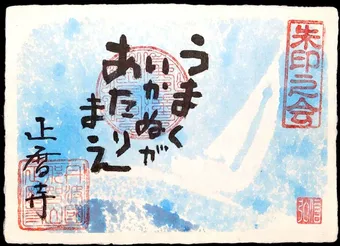 朱印之会
うまく
いかぬが
あたり
まえ
正暦寺